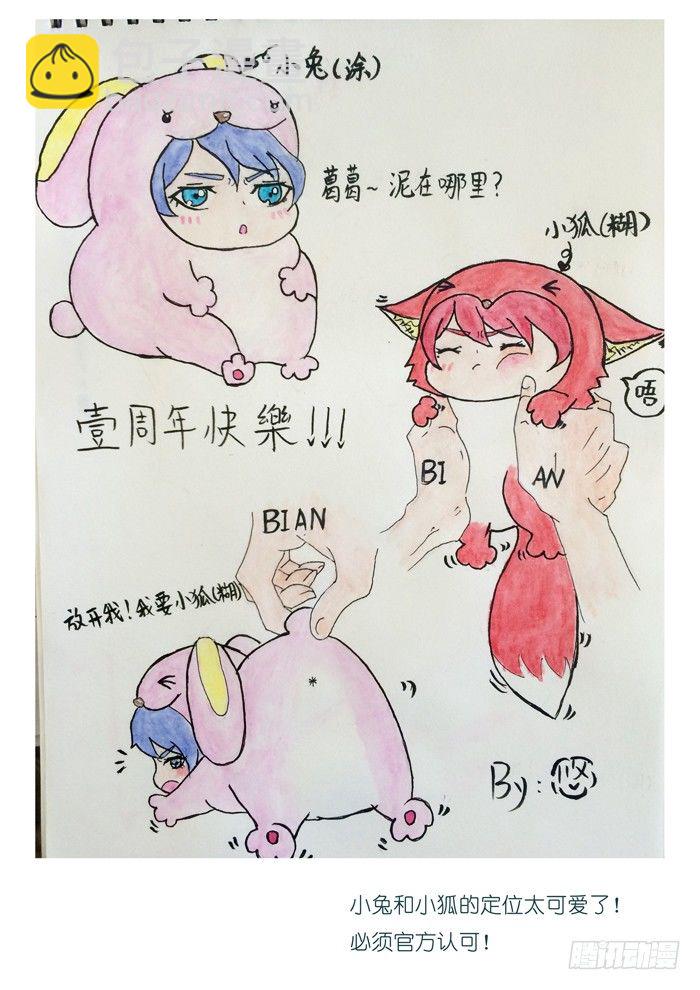 小兔(涂)
葛葛~泥在哪里？
小狐(糊)
唔
壹周年快樂!!!
BI
AN
BIAN
放开我！我要小狐(糊)
By:悠
小兔和小狐的定位太可爱了！
必须官方认可！
腾讯动漫